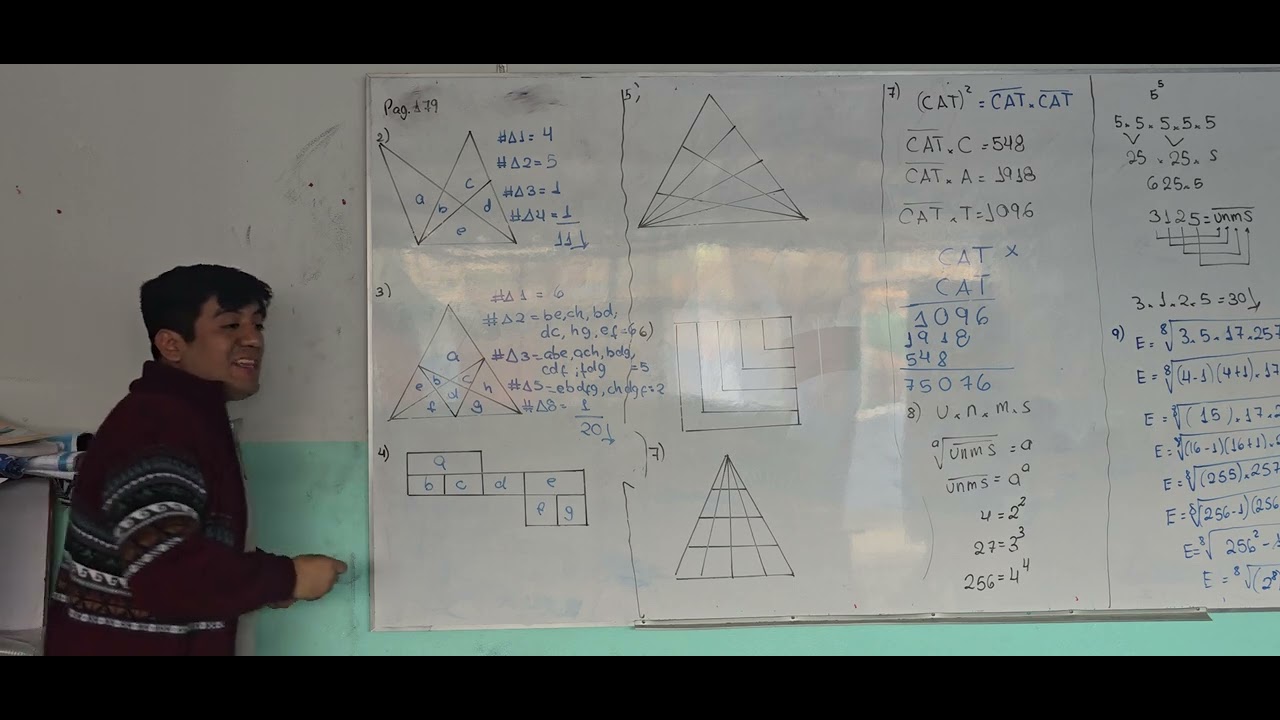 Pag. 179
2)
#Δ1 = 4
#Δ2 = 5
#Δ3 = 1
#Δ4 = 1
11
a
b
c
d
e
3)
#Δ1 = 6
#Δ2 = be, ch, bd,
dc, hg, ef = 6 6)
#Δ3 = abe, ach, bdg,
cdf, fdg = 5
#Δ5 = ebdfg, chdgf = 2
#Δ8 = 1
20
a
e b c h
d
f g
4)
a
b c d e
f g
5)
7)
7)
(CAT)² = CAT × CAT
CAT × C = 548
CAT × A = 1918
CAT × T = 1096
CAT ×
CAT
1096
1918
548
75076
8) U × n × m × s
ᵃ√unms = a
unms = aᵃ
4 = 2²
27 = 3³
256 = 4⁴
5⁵
5 × 5 × 5 × 5 × 5
25 × 25 × 5
625 × 5
3125 = unms
3 × 1 × 2 × 5 = 30
9) E = ⁸√3.5.17.257
E = ⁸√(4-1)(4+1).17
E = ⁸√(15).17.
E = ⁸√(16-1)(16+1).
E = ⁸√(255).257
E = ⁸√(256-1)(256
E = ⁸√256² - 1
E = ⁸√(2⁸)